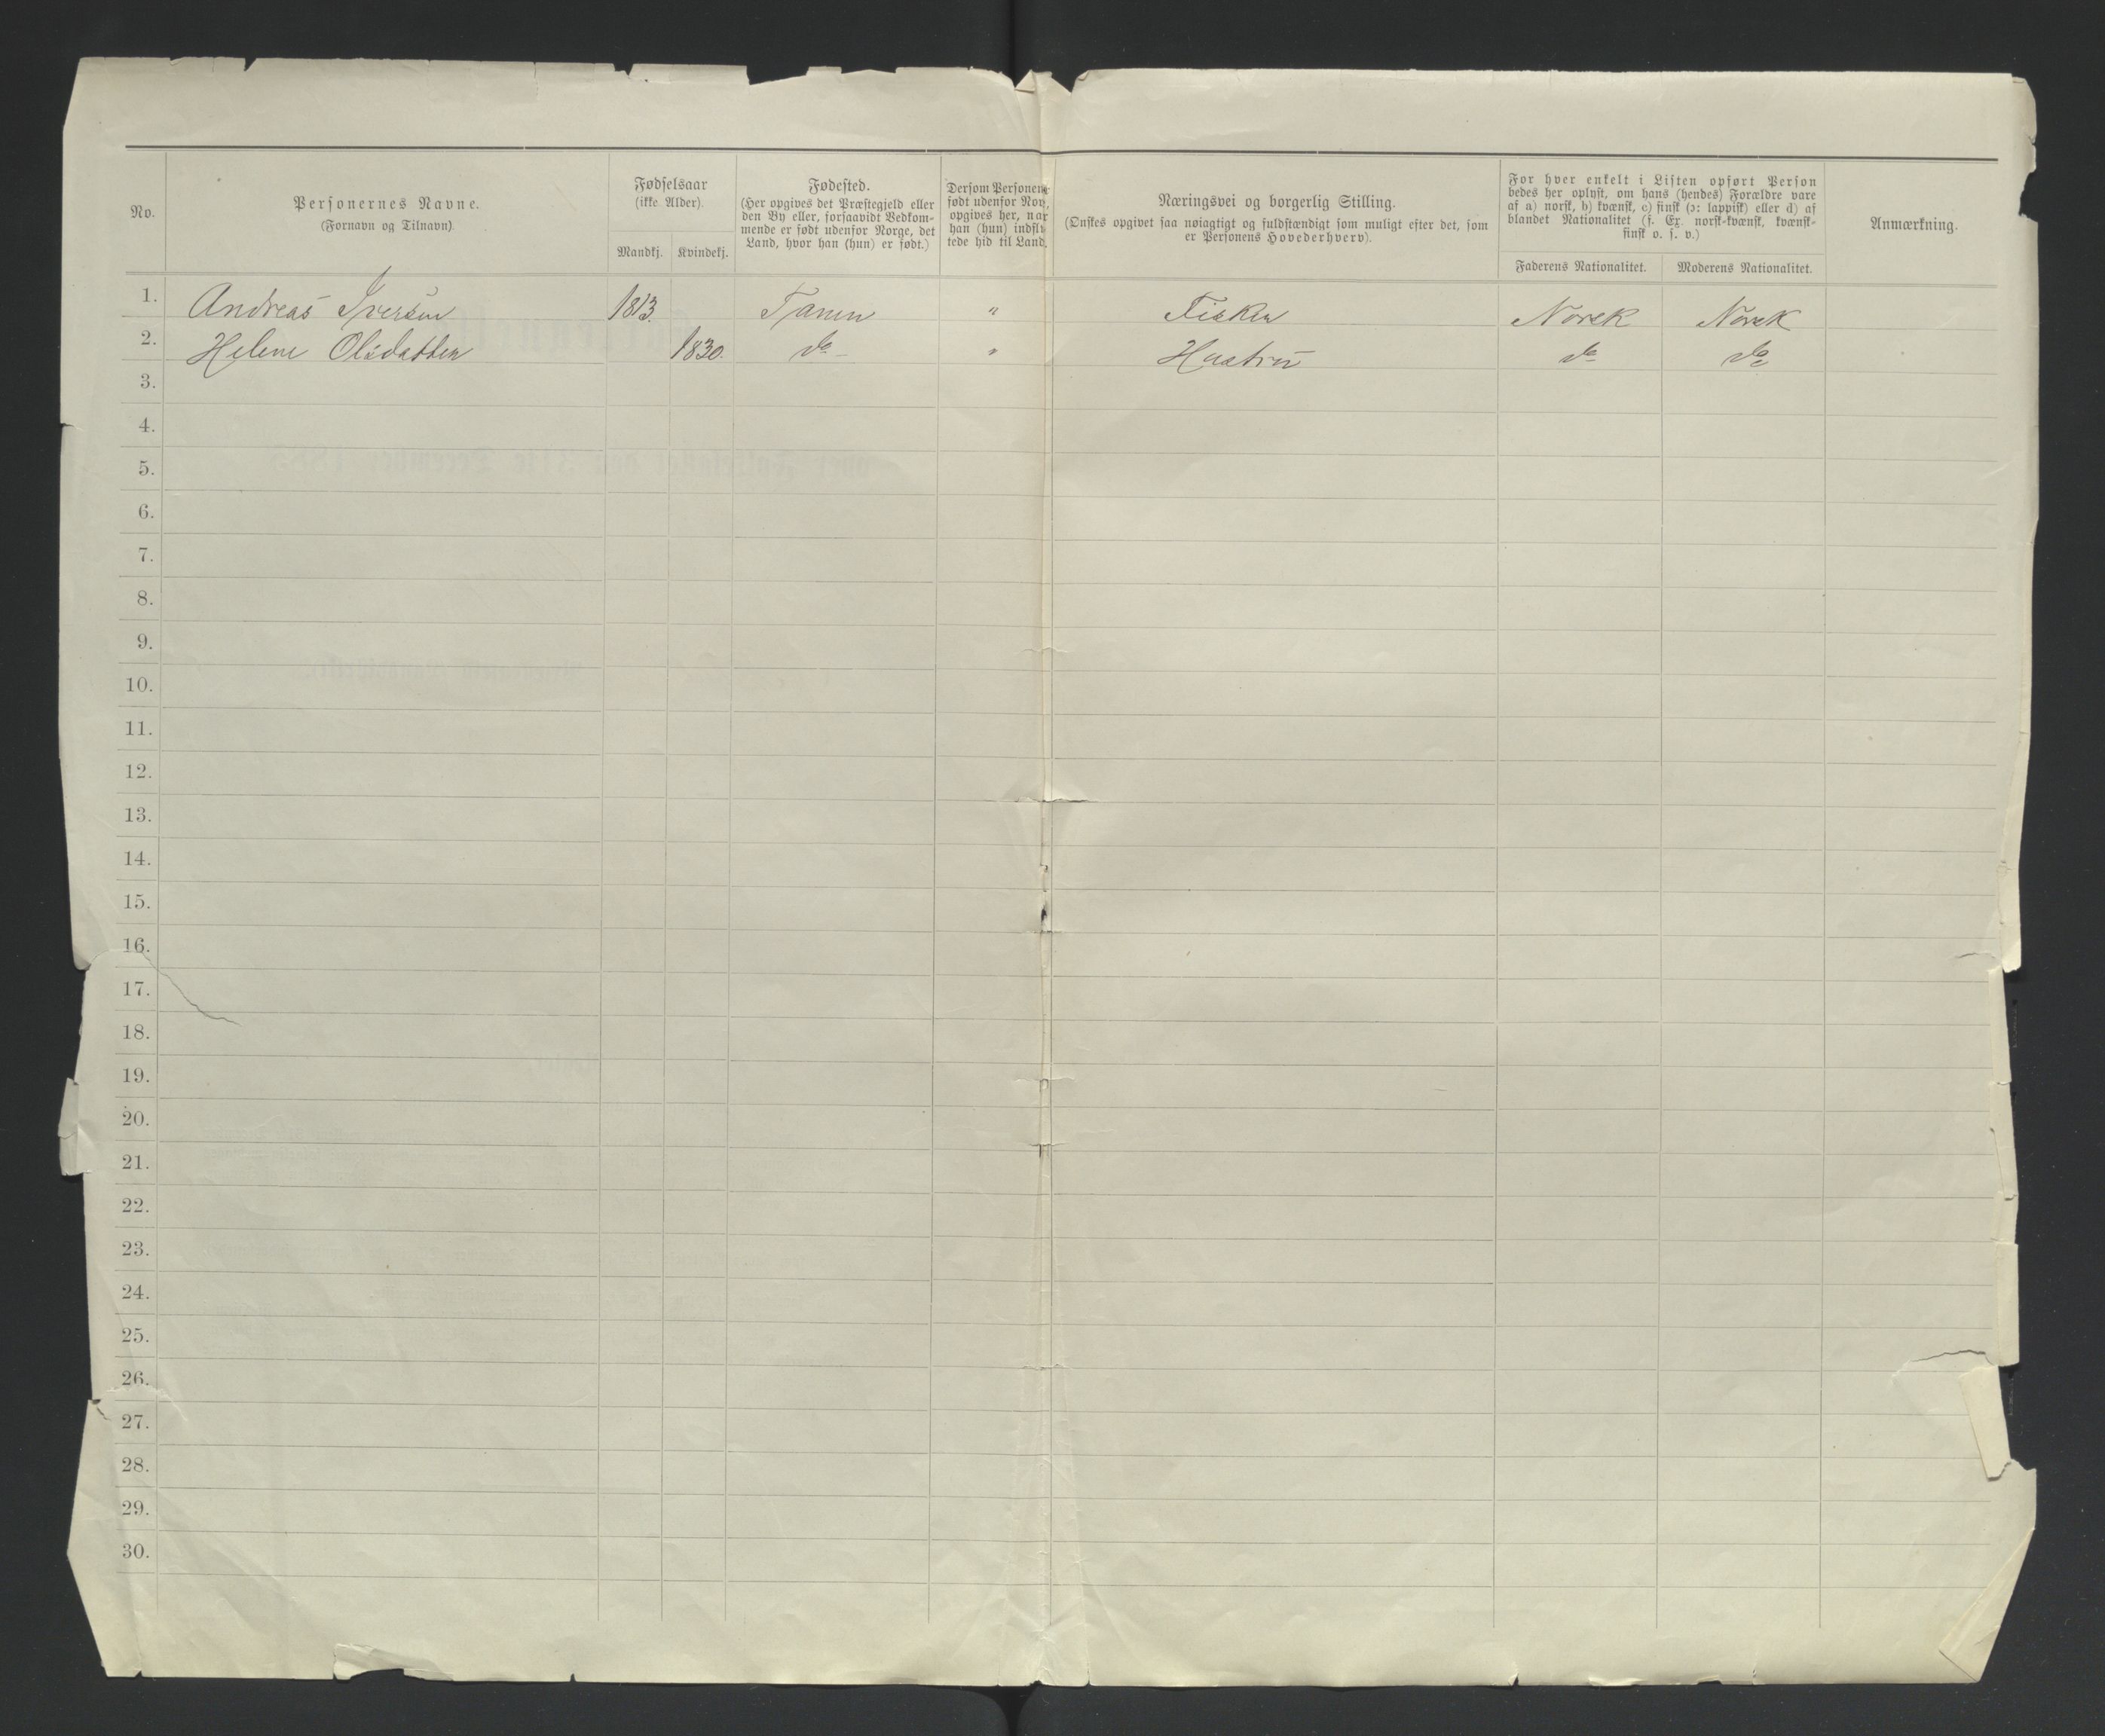 No.
Personernes Navne.
(Fornavn og Tilnavn).
Fødselsaar
(ikke Alder).
Mandkj. Kvindekj.
Fødested.
(Her opgives det Præstegjeld eller
den By eller, forsaavidt Vedkom-
mende er født udenfor Norge, det
Land, hvor han (hun) er født.)
Dersom Personen er
født udenfor
opgives her, naar
han (hun)
tede hid til Land.
Næringsvei og borgerlig Stilling.
(Ønskes opgivet saa nøiagtigt og fuldstændigt som muligt efter det, som
er Personens Hovederhverv).
For hver enkelt i Listen opført Person
bedes her oplyst, om hans (hendes) Forældre vare
af a) norsk, b) kvænsk, c) finsk (ɔ: lappisk) eller d) af
blandet Nationalitet (f. Ex. norsk-kvænsk, kvænsk-
finsk o. s. v.)
Faderens Nationalitet. Moderens Nationalitet.
Anmærkning.
1. Andreas Iversen 1813. Tanen " Fisker Norsk Norsk
2. Helene Olsdatter 1830. do " Hustru do do
3.
4.
5.
6.
7.
8.
9.
10.
11.
12.
13.
14.
15.
16.
17.
18.
19.
20.
21.
22.
23.
24.
25.
26.
27.
28.
29.
30.